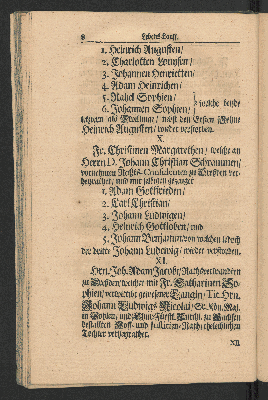 8 Lebens-Lauff.
1. Heinrich Augusten/
2. Charlotten Louysen/
3. Johannen Henrietten/
4. Adam Heinrichen/
5. Rahel Sophien/
6. Johannen Sophien/ } welche beyde
letztern als Zwillinge/ nebst den Ersten Sohne
Heinrich Augusten/ wieder verstorben.
X.
Fr. Christinen Margarethen/ welche an
Herrn D. Johann Christian Schrammen/
vornehmen Rechts-Consulenten zu Dreßden ver-
heyrathet/ und mit selbigen gezeuget
1. Adam Gottfrieden/
2. Carl Christian/
3. Johann Ludwigen/
4. Heinrich Gottloben/ und
5. Johann Benjamin/ von welchen iedoch
der dritte Johann Ludewig/ wieder verstorben.
XI.
Hrn. Joh. Adam Jacobi/ Rathsverwandten
zu
welcher mit Fr. Catharinen So-
phien/ verwitbet gewesener Langin/ Tit. Hrn.
Johann Ludwigs Nicolai/ Se. Kön. Maj.
in Pohlen/ und Chur-Fürstl. Durchl. zu Sachsen
bestallten Hoff- und
Rath/ eheleiblichen
Tochter verheyrathet.
XII.